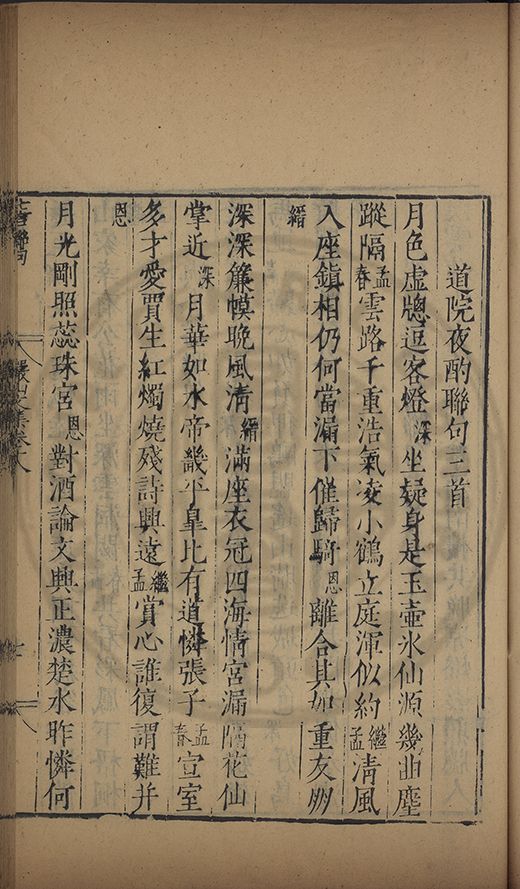 道院夜酌聯句三首
月色虛牕逗客燈深坐疑身是玉壺氷仙源幾曲塵
蹤隔孟春雲路千重浩氣凌小鶴立庭渾似約繼孟清風
入座鎮相仍何當漏下催歸騎恩離合其如重友朋
縉
深深簾幙晚風清縉滿座衣冠四海情宮漏隔花仙
掌近深月華如水帝畿平皐比有道憐張子孟春宣室
多才愛賈生紅燭燒殘詩興遠繼孟賞心誰復謂難并
恩
月光剛照蕊珠宮恩對酒論文興正濃楚水昨憐何